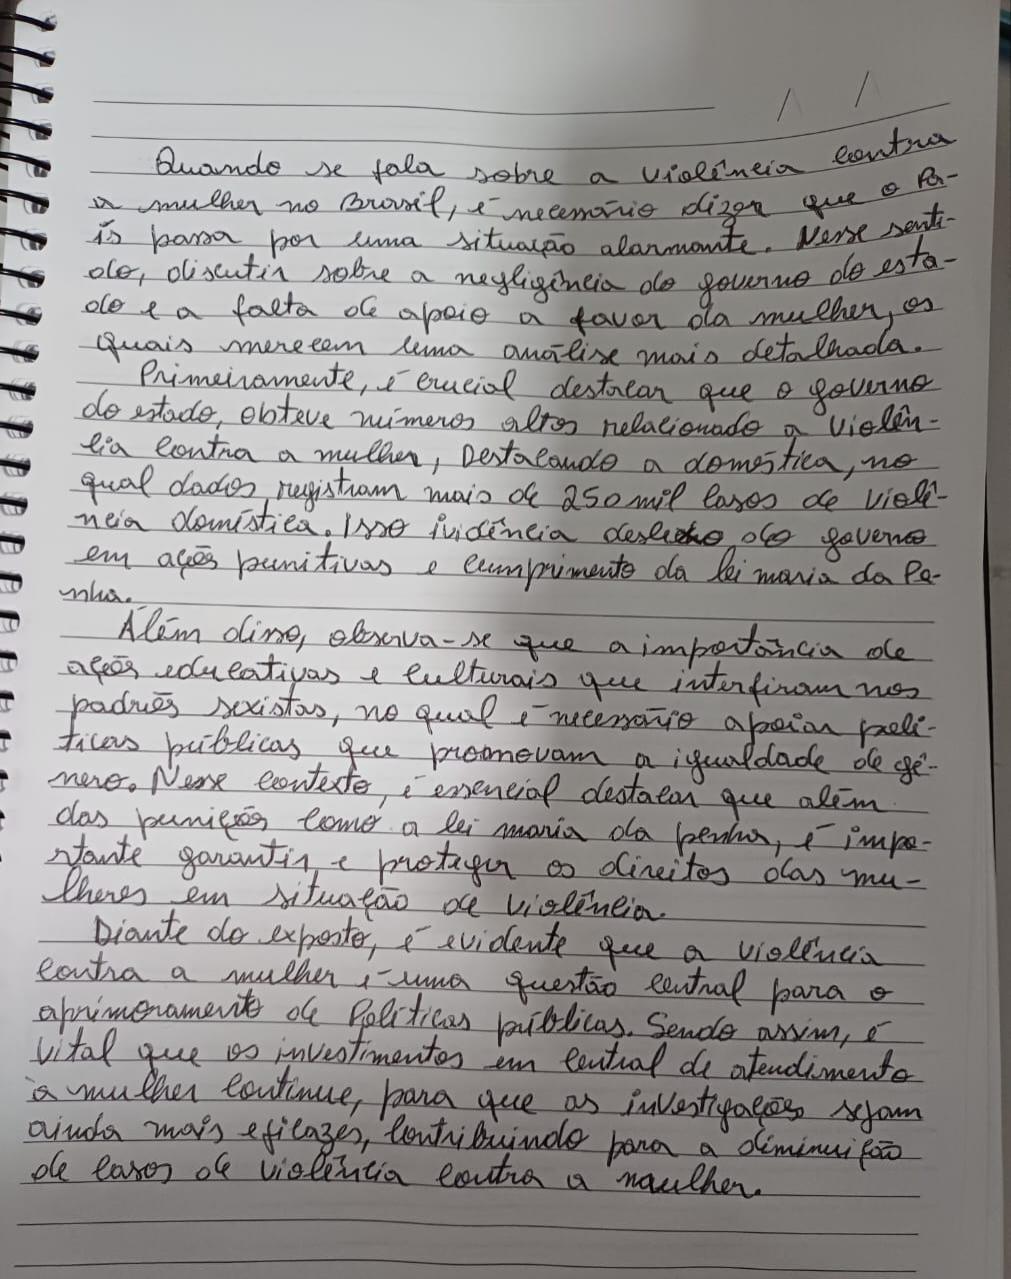 Quando se fala sobre a violência contra
a mulher no Brasil, é necessário dizer que o Pa-
ís passa por uma situação alarmante. Nesse senti-
do, discutir sobre a negligência do governo do esta-
do e a falta de apoio a favor da mulher, os
quais merecem uma análise mais detalhada.
Primeiramente, é crucial destacar que o governo
do estado, obteve números altos relacionado a violên-
cia contra a mulher, Destacando a doméstica, no
qual dados registram mais de 250 mil casos de violê-
ncia doméstica. Isso ividência desleixo do governo
em ações punitivas e cumprimento da lei maria da Pe-
nha.
Além disso, observa-se que a importância de
ações educativas e culturais que interfiram nos
padrões sexistas, no qual é necessário apoiar polí-
ticas públicas que promovam a igualdade de gê-
nero. Nesse contexto, é essencial destacar que além
das punições como a lei maria da penha, é impo-
rtante garantir e proteger os direitos das mu-
lheres em situação de violência.
Diante do exposto, é evidente que a violência
contra a mulher é uma questão central para o
aprimoramento de Políticas públicas. Sendo assim, é
vital que os investimentos em central de atendimento
à mulher continue, para que as investigações sejam
ainda mais eficazes, contribuindo para a diminuição
de casos de violência contra a maulher.